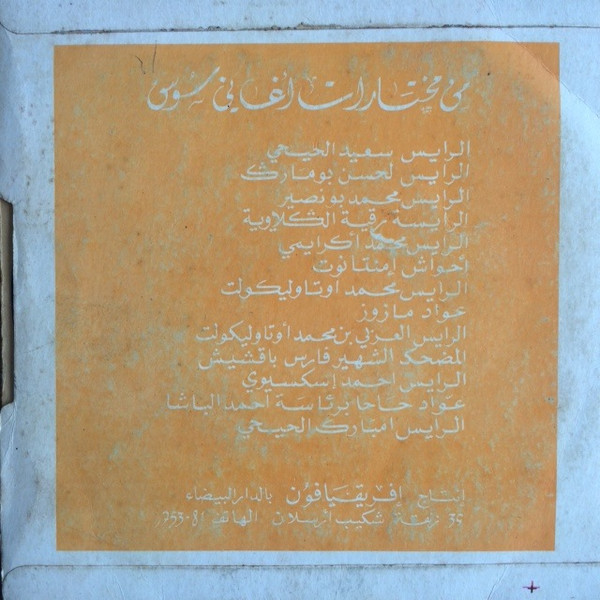 من مختارات أغاني سوس
الرايس سعيد الحيحي
الرايس لحسن بومارڭ
الرايس محمد بونصير
الرايسة رقية الڭلاوية
الرايس محمد أكرايمي
أحواش إمنتانوت
الرايس محمد اوتاوليكولت
عواد مازوز
الرايس العربي بن محمد اوتاوليكولت
المضحك الشهير فارس باقشيش
الرايس احمد إسكسيوي
عواد حاحا برئاسة احمد الباشا
الرايس امبارك الحيحي
إنتاج إفريقيافون بالدار البيضاء
35 زنقة شكيب أرسلان الهاتف 81-753